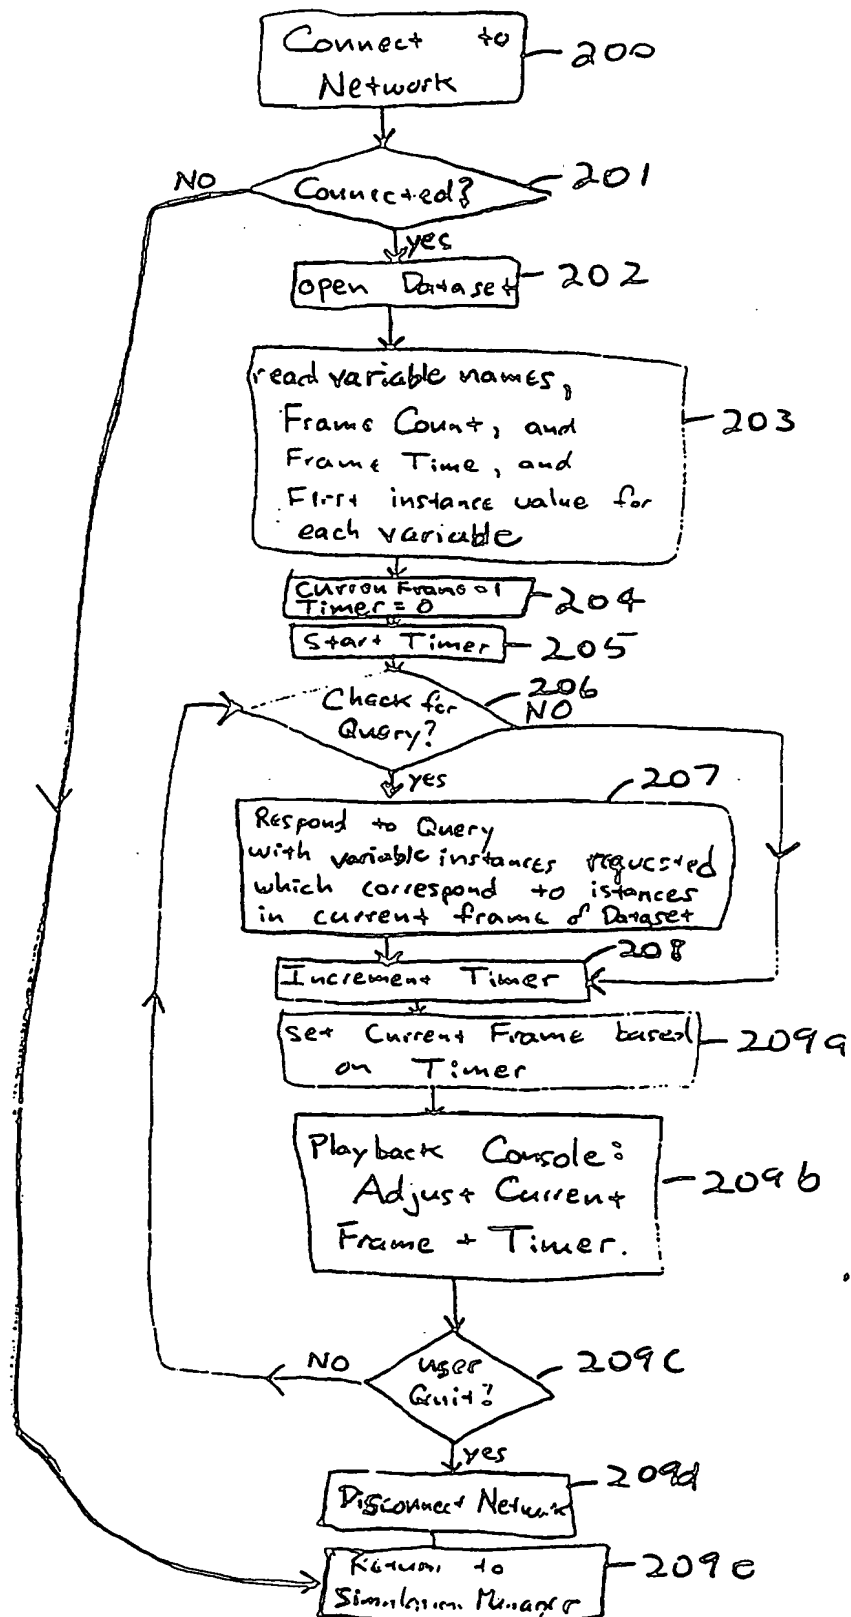 Connect to
Network
200
Connected?
201
NO
yes
open Dataset
202
read variable names,
Frame Count, and
Frame Time, and
First instance value for
each variable
203
Timer = 0
204
Start Timer
205
Check for
Query?
206
NO
yes
207
Respond to Query
with variable instances requested
which correspond to istances
in current frame of Dataset
208
Increment Timer
set Current Frame based
on Timer
209a
Playback Console:
Adjust Current
Frame + Timer.
209b
user
Quit?
209c
NO
yes
Disconnect Network
209d
Return to
Simulation Manager
209e